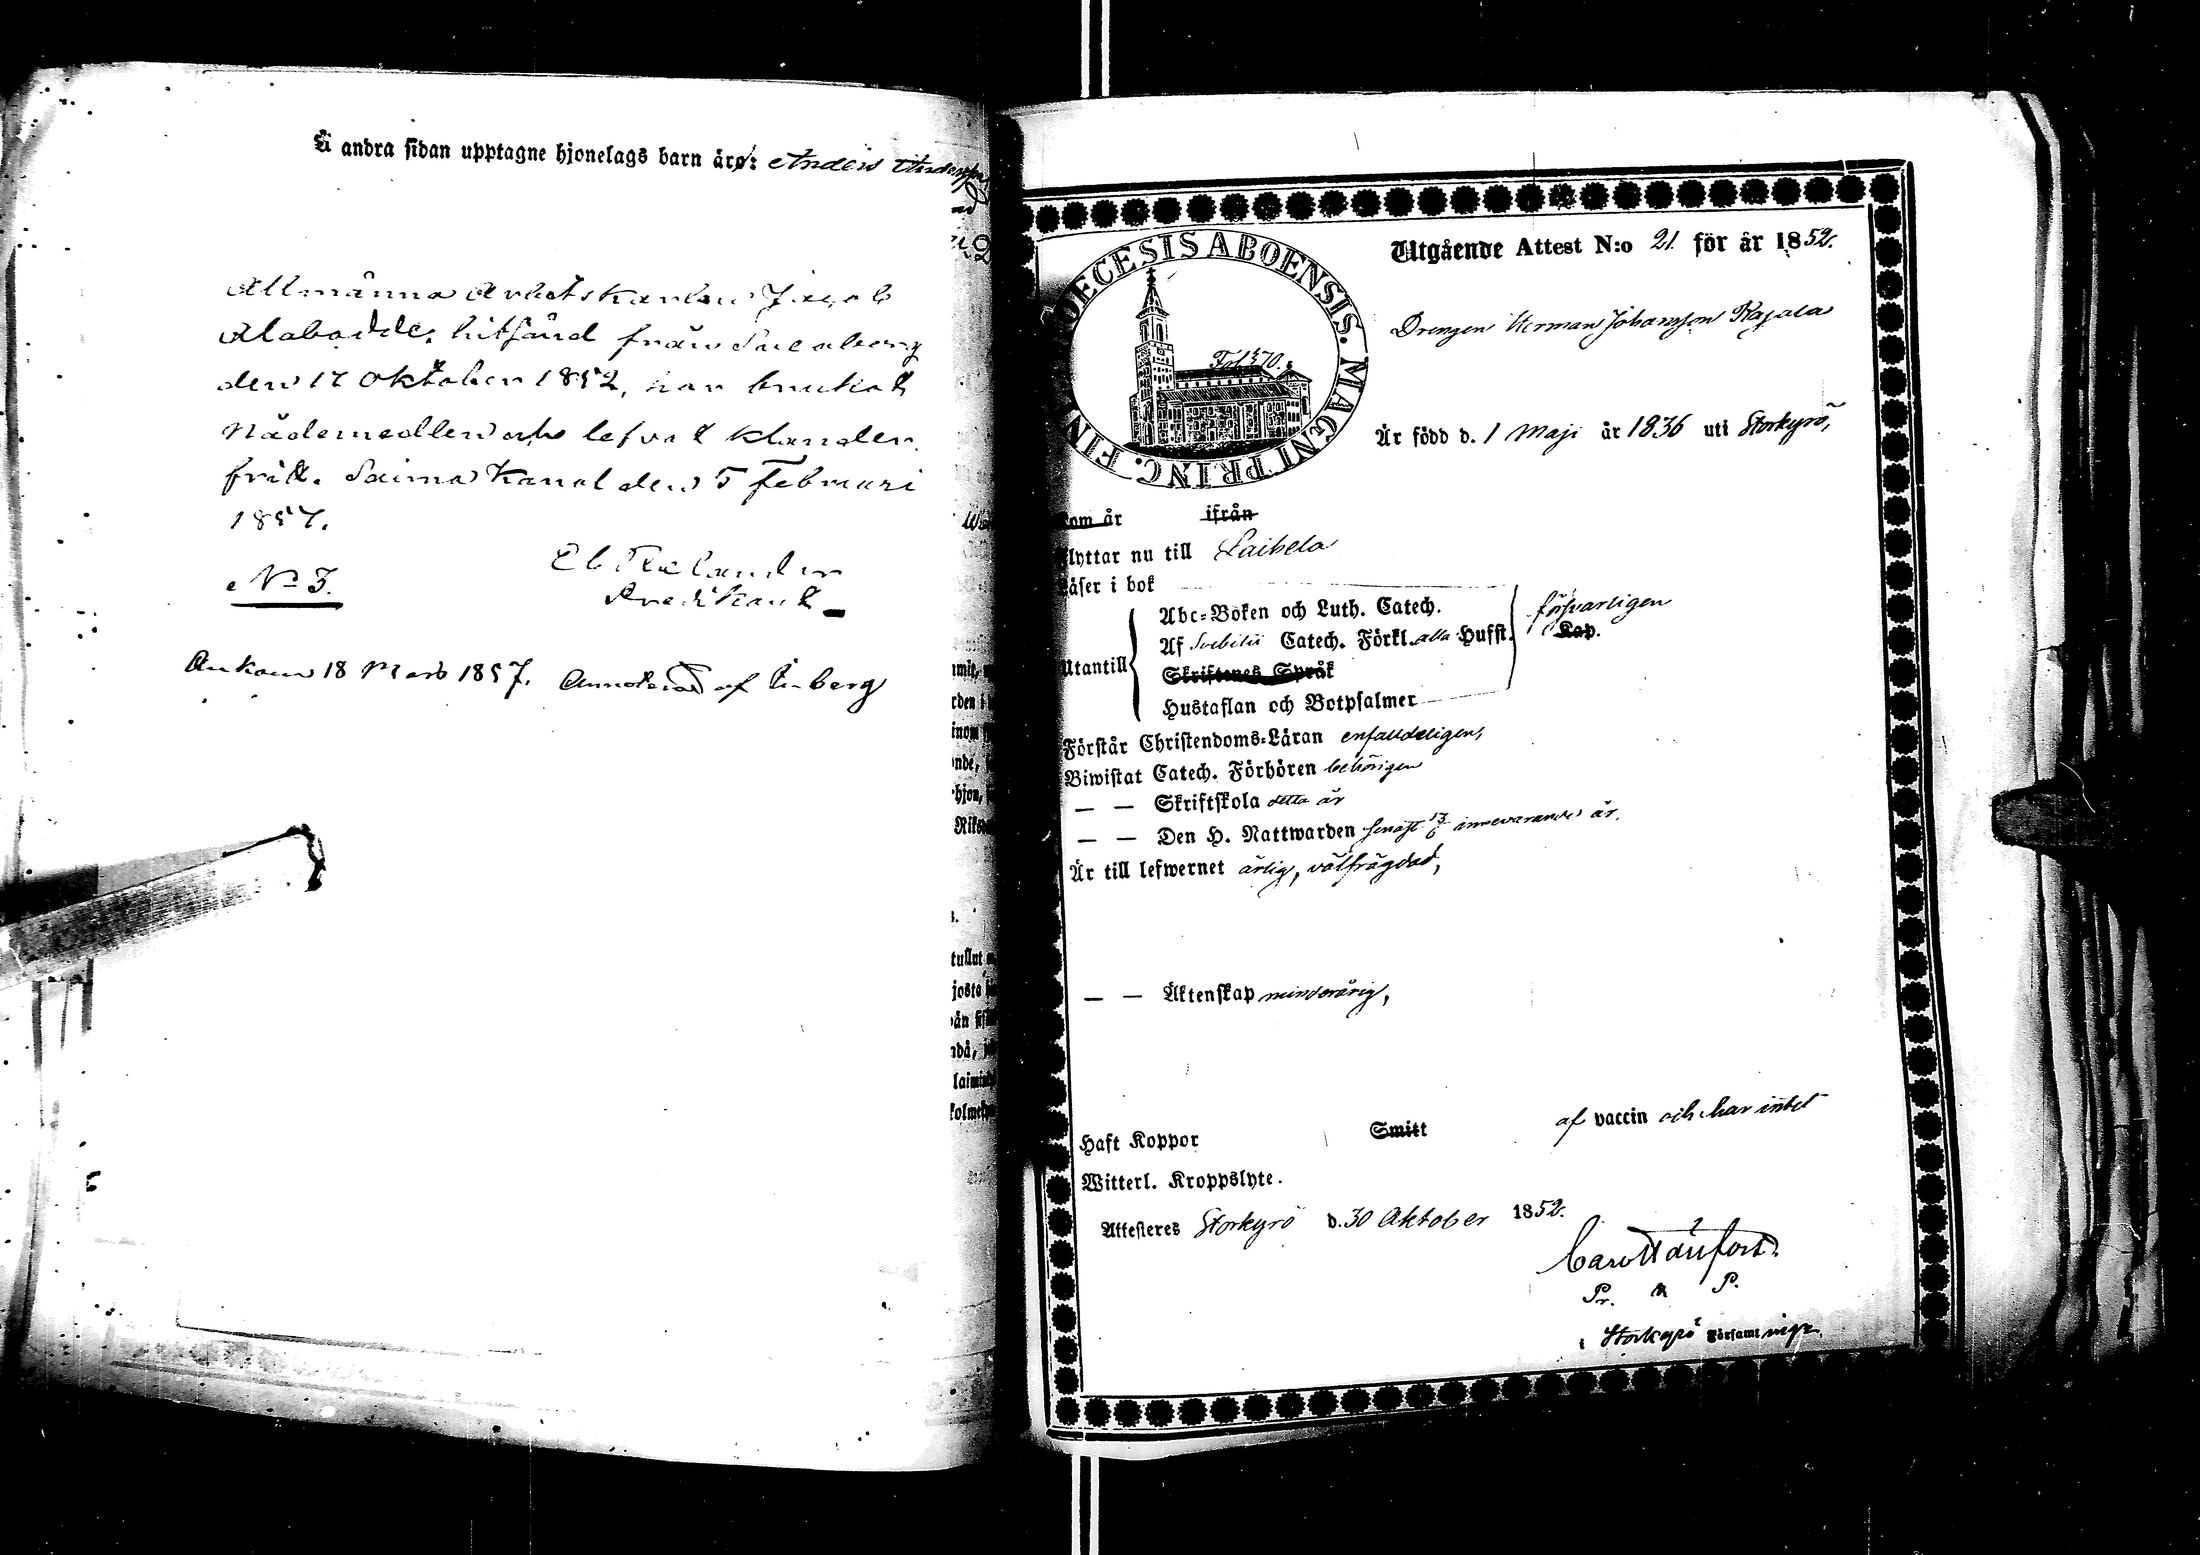 Å andra sidan upptagne hjonelags barn äro: Anders Andersson
Allmänna Arbetskarlen Jacob
Alabodde, hitsänd från Sveaborg
den 17 Oktober 1852, har brukat
Nådemedlen och lefvat klander
fritt. Saima Kanal den 5 Februari
1857.
Predikant
No 3.
Ankom 18 Mars 1857. Annoterad af
Utgående Attest N:o 21 för år 1852.
DIOECESIS ABOENSIS. MAGNI PRINC. FIN
Fol 570.
Drengen Herman Johansson Kajala
Är född d. 1 Maji år 1836 uti Storkyrö,
kom år ifrån
Flyttar nu till Laihela
Läser i bok
Utantill
Abc-Boken och Luth. Catech.
Af Svebilii Catech. Förkl. alla Husst. försvarligen
Kap.
Skriftenes Språk
Hustaflan och Botpsalmer
Förstår Christendoms-Läran enfalldeligen,
Biwistat Catech. Förhören behörigen
— — Skriftskola detta år
— — Den H. Nattwarden senast 13/6 innevarande år.
Är till lefwernet ärlig, välfrägdad,
— — Äktenskap minderårig,
Haft Koppor Smitt af vaccin och har intet
Witterl. Kroppslyte.
Attesteres Storkyrö d. 30 Oktober 1852.
Pr. & P.
i Storkyrö Församlingr.